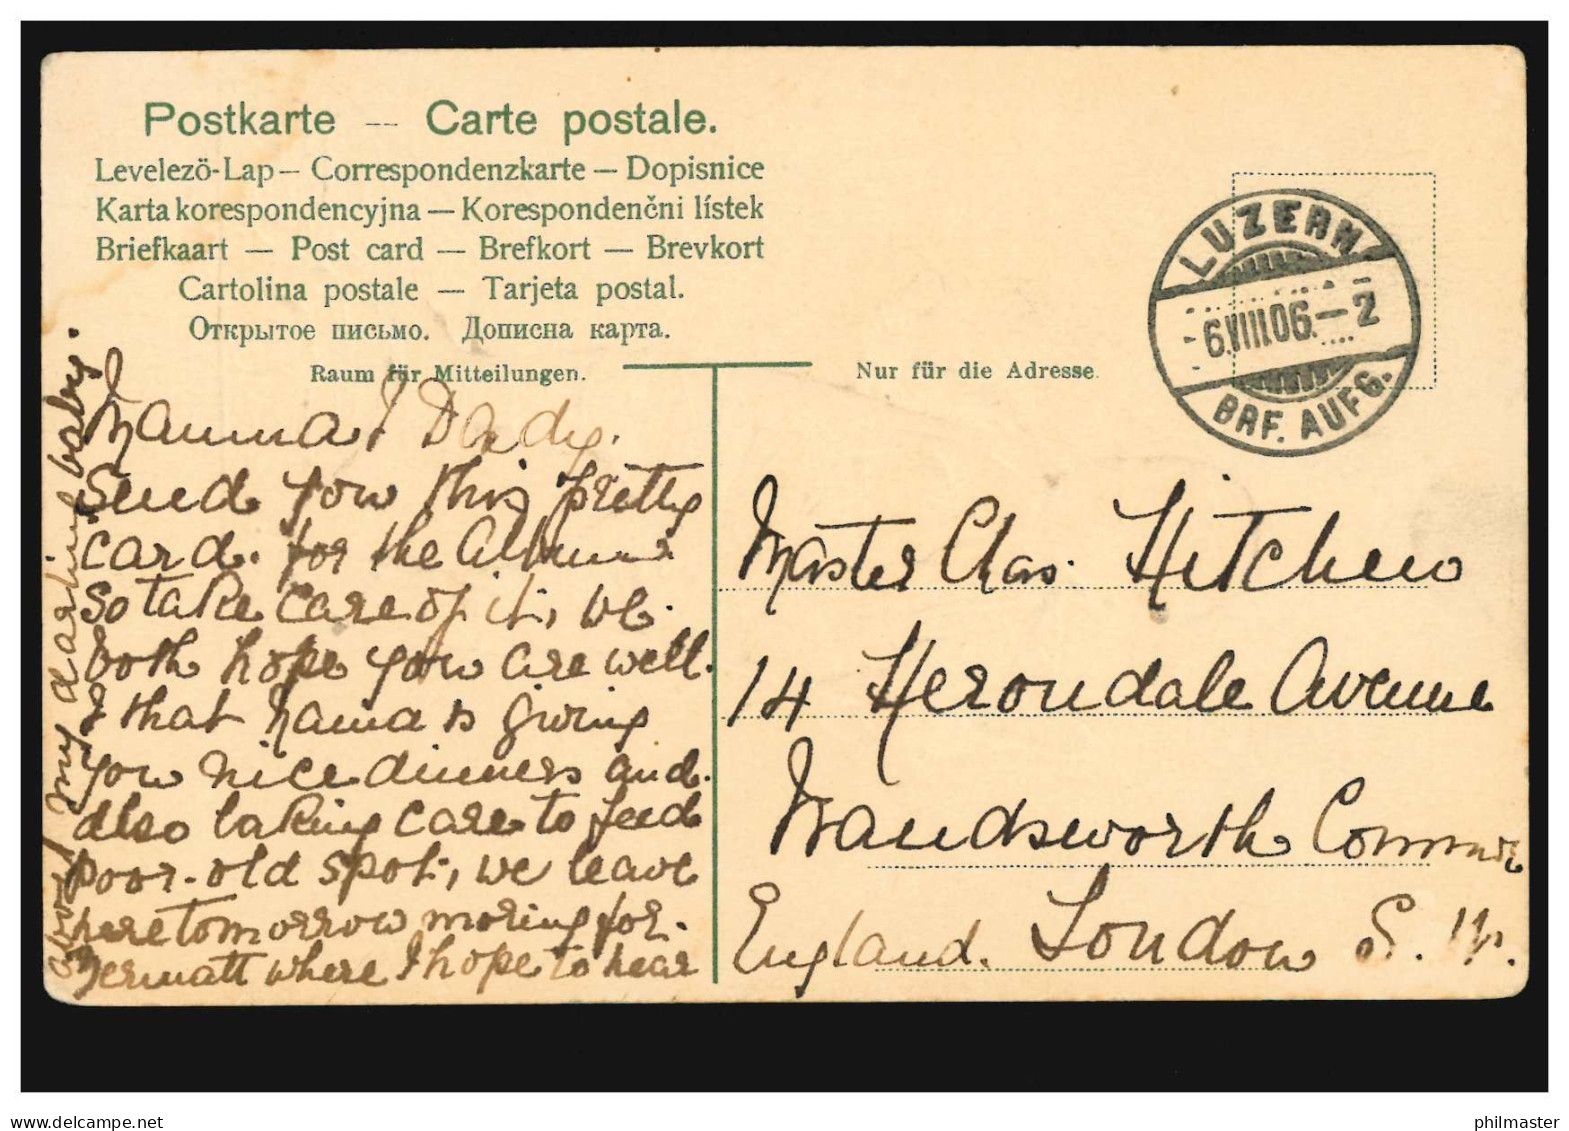 Postkarte — Carte postale.
Levelező-Lap — Correspondenzkarte — Dopisnice
Karta korespondencyjna — Korespondenčni lístek
Briefkaart — Post card — Brefkort — Brevkort
Cartolina postale — Tarjeta postal.
Открытое письмо. Дописна карта.
Raum für Mitteilungen.
Nur für die Adresse.
LUZERN
6.VIII.06.—2
BRF. AUFG.
Mamma & Dady.
Send you this pretty
card. for the Album
so take care of it, we.
both hope you are well.
& that Nama is giving
you nice dinners and.
also taking care to feed
poor-old spot, we leave
here tomorrow moring for.
Zermatt where I hope to hear
my darling baby.
Master Chas. Hitchen
14 Herondale Avenue
Wandsworth Common
England. London S. W.
philmaster